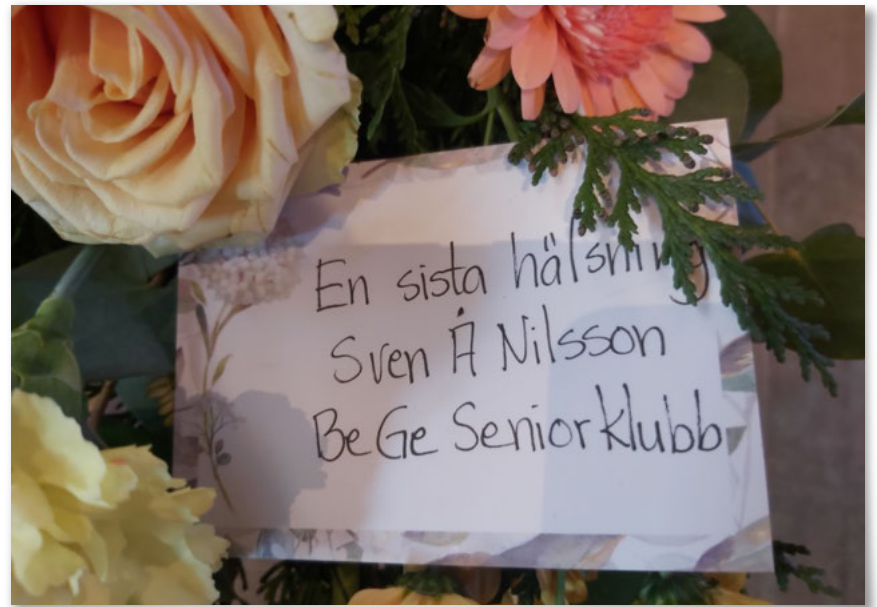 En sista hälsning
Sven Å Nilsson
BeGe Seniorklubb